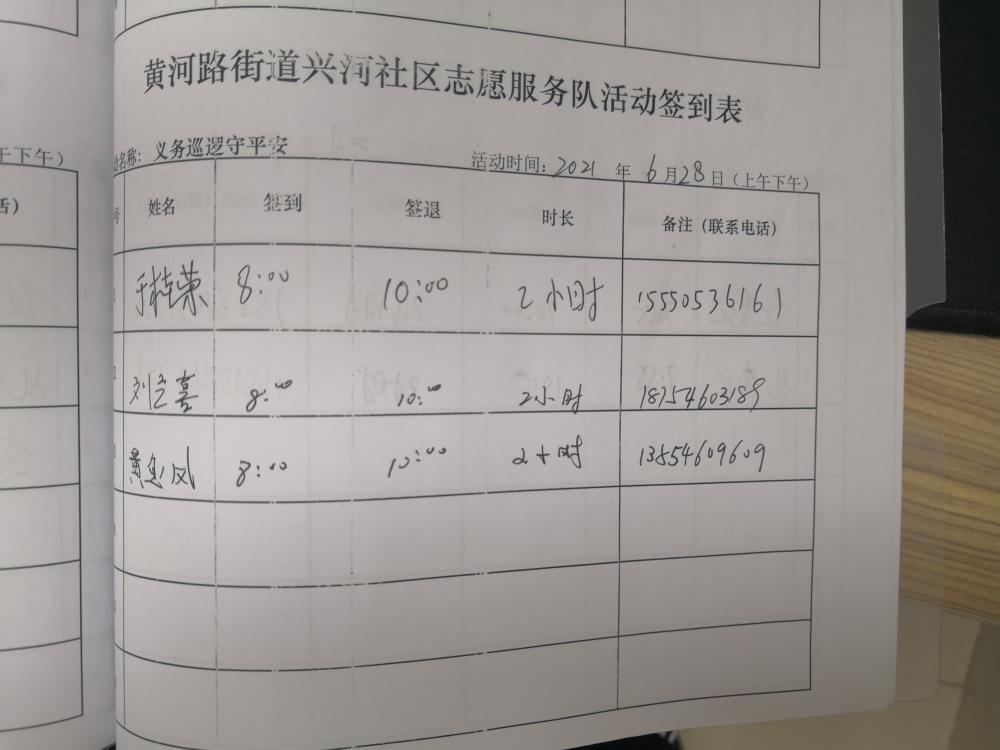 黄河路街道兴河社区志愿服务队活动签到表
动名称：义务巡逻守平安 活动时间：2021 年 6月28日（上午下午）
号 姓名 签到 签退 时长 备注（联系电话）
8:00 10:00 2小时 15550536161
刘喜 8:00 10:00 2小时 18754603189
黄凤 8:00 10:00 2小时 13854609609
午下午）
话）